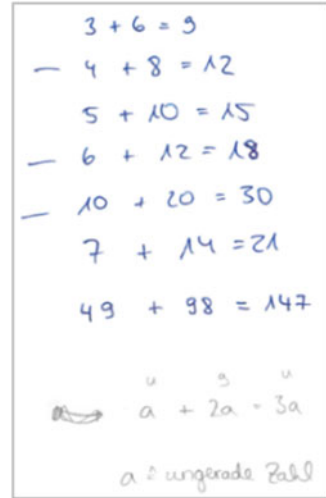 3 + 6 = 9
— 4 + 8 = 12
5 + 10 = 15
— 6 + 12 = 18
— 10 + 20 = 30
7 + 14 = 21
49 + 98 = 147
u g u
a + 2a = 3a
a ≙ ungerade Zahl